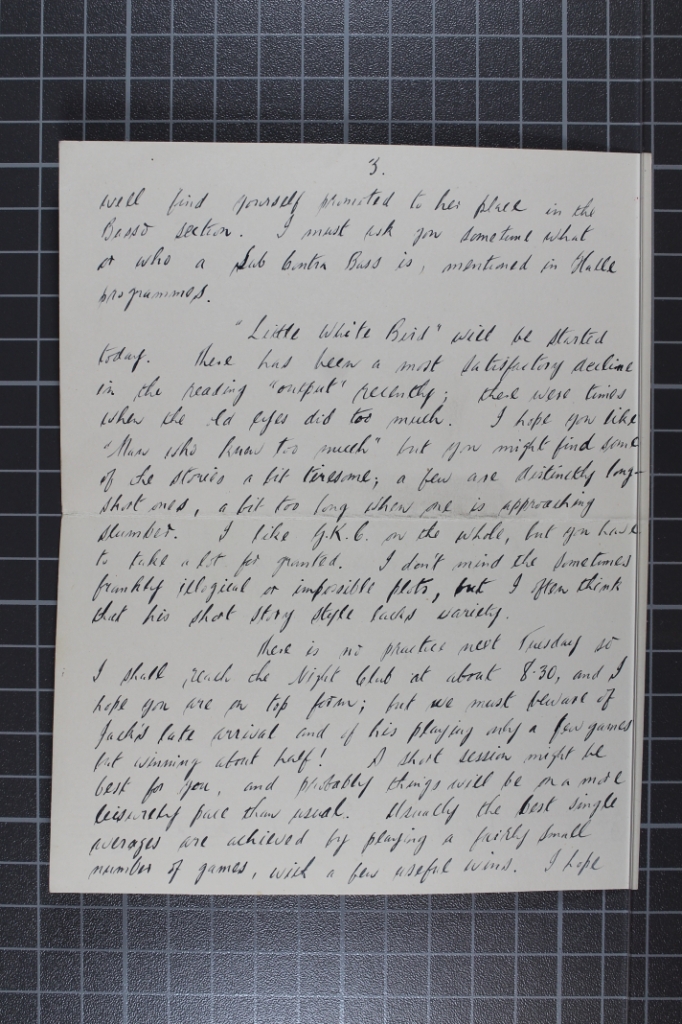 3.
well find yourself promoted to her place in the
Basso section. I must ask you sometime what
or who a Sub Contra Bass is, mentioned in Halle
programmes.
"Little White Bird" will be started
today. There has been a most satisfactory decline
in the reading "output" recently; there were times
when the old eyes did too much. I hope you like
"Man who knew too much" but you might find some
of the stories a bit tiresome; a few are distinctly long-
short ones, a bit too long when one is approaching
slumber. I like G.K.C. on the whole, but you have
to take a lot for granted. I don't mind the sometimes
frankly illogical or impossible plots, but I often think
that his short story style lacks variety.
There is no practice next Tuesday so
I shall reach the Night Club at about 8-30, and I
hope you are on top form; but we must beware of
Jack's late arrival and of his playing only a few games
but winning about half! A short session might be
best for you, and probably things will be on a more
leisurely pace than usual. Usually the best single
averages are achieved by playing a fairly small
number of games, with a few useful wins. I hope